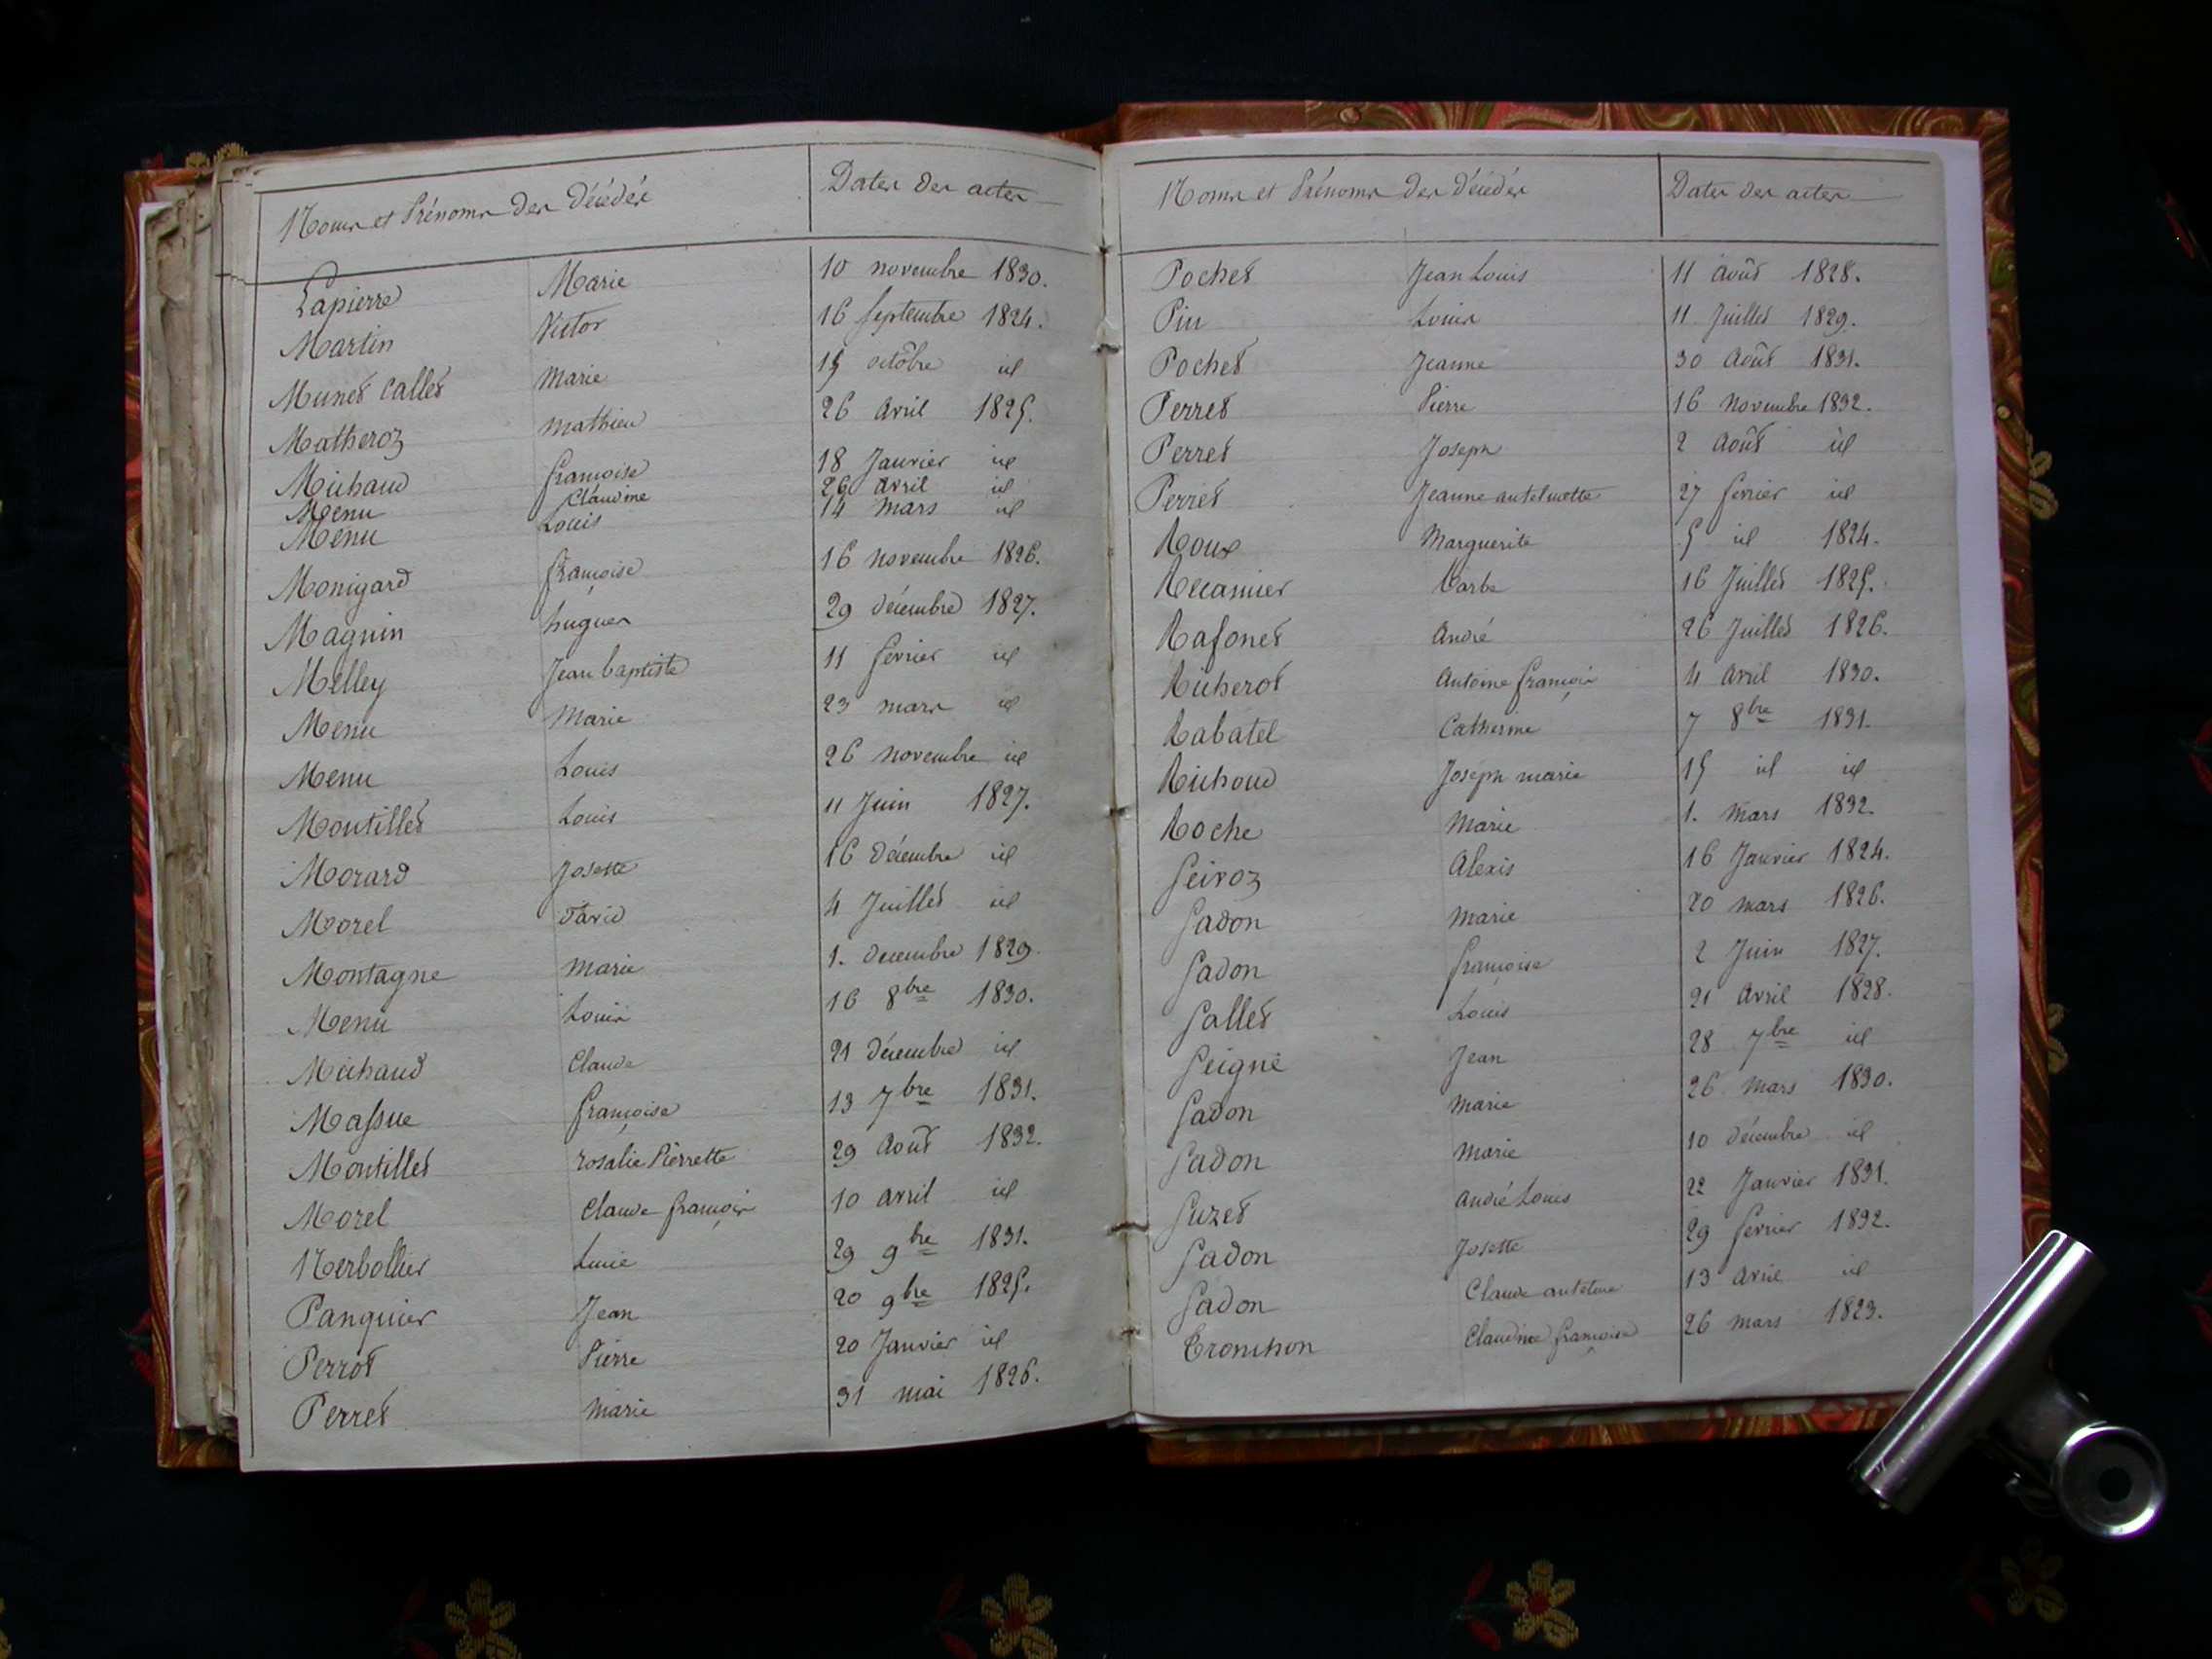 Noms et Prénoms des Décédés Dates des actes
Lapierre Marie 10 novembre 1830.
Martin Victor 16 septembre 1824.
Munet Callet Marie 15 octobre id
Matheroz Mathieu 26 avril 1825.
Michaud françoise 18 Janvier id
Menu Claudine 29 avril id
Menu Louis 14 mars id
Monigard françoise 16 novembre 1826.
Magnin hugues 29 décembre 1827.
Melley Jean baptiste 11 fevrier id
Menu Marie 23 mars id
Menu Louis 26 novembre id
Montillet Louis 11 Juin 1827.
Morard Josette 16 Décembre id
Morel David 4 Juillet id
Montagne Marie 1. decembre 1829.
Menu Louis 16 8bre 1830.
Michaud Claude 21 Décembre id
Massue françoise 13 7bre 1831.
Montillet rosalie Pierrette 29 Août 1832.
Morel Claude françois 10 avril id
Nerbollier Lucie 29 9bre 1831.
Panquier Jean 20 9bre 1825.
Perrot Pierre 20 Janvier id
Perret Marie 31 mai 1826.
Noms et Prénoms des Décédés Dates des actes
Pochet Jean Louis 11 août 1828.
Pin Louis 11 Juillet 1829.
Pochet Jeanne 30 Août 1831.
Perret Pierre 16 Novembre 1832.
Perret Joseph 2 Août id
Perret Jeanne antelmette 27 fevrier id
Roux Marguerite 5 id 1824.
Recamier barbe 16 Juillet 1825.
Rafonet André 26 Juillet 1826.
Richerot Antoine françois 4 avril 1830.
Rabatel Catherine 7 8bre 1831.
Richoud Joseph marie 15 id id
Roche Marie 1. Mars 1832.
Seivoz Alexis 16 Janvier 1824.
Sadon Marie 20 mars 1826.
Sadon françoise 2 Juin 1827.
Sallet Louis 21 Avril 1828.
Seigne Jean 28 7bre id
Sadon Marie 26 mars 1830.
Sadon Marie 10 décembre id
Suzet André Louis 22 Janvier 1831.
Sadon Josette 29 fevrier 1832.
Sadon Claude antelme 13 avril id
Tronchon Claudine françoise 26 mars 1823.